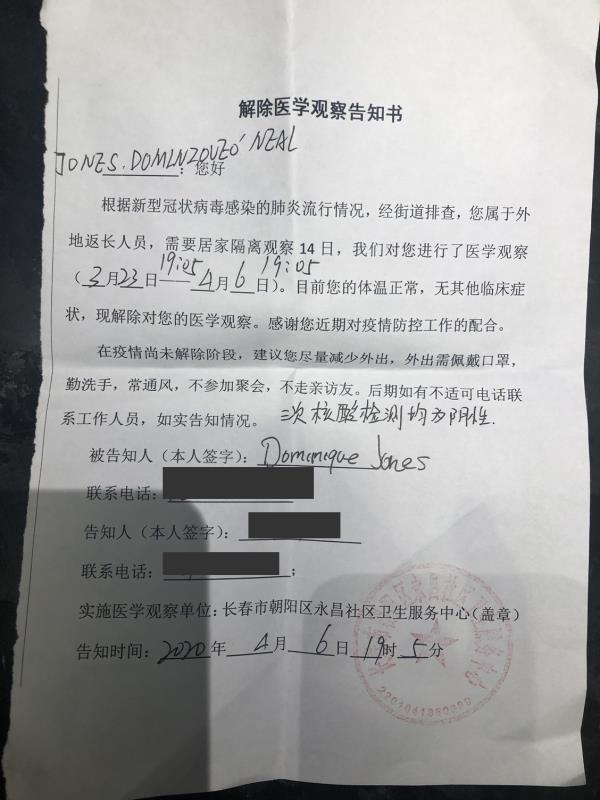 解除医学观察告知书
JONES.DOMINZOUEO'NEAL
：您好
根据新型冠状病毒感染的肺炎流行情况，经街道排查，您属于外
地返长人员，需要居家隔离观察 14 日，我们对您进行了医学观察
19:05 19:05
（3月23日——4月6日）。目前您的体温正常，无其他临床症
状，现解除对您的医学观察。感谢您近期对疫情防控工作的配合。
在疫情尚未解除阶段，建议您尽量减少外出，外出需佩戴口罩，
勤洗手，常通风，不参加聚会，不走亲访友。后期如有不适可电话联
系工作人员，如实告知情况。 三次核酸检测均为阴性.
被告知人（本人签字）：Dominique Jones
联系电话：
告知人（本人签字）：
联系电话： ；
实施医学观察单位：长春市朝阳区永昌社区卫生服务中心（盖章）
告知时间：2020年 4月 6日 19时 5分
2201041880898